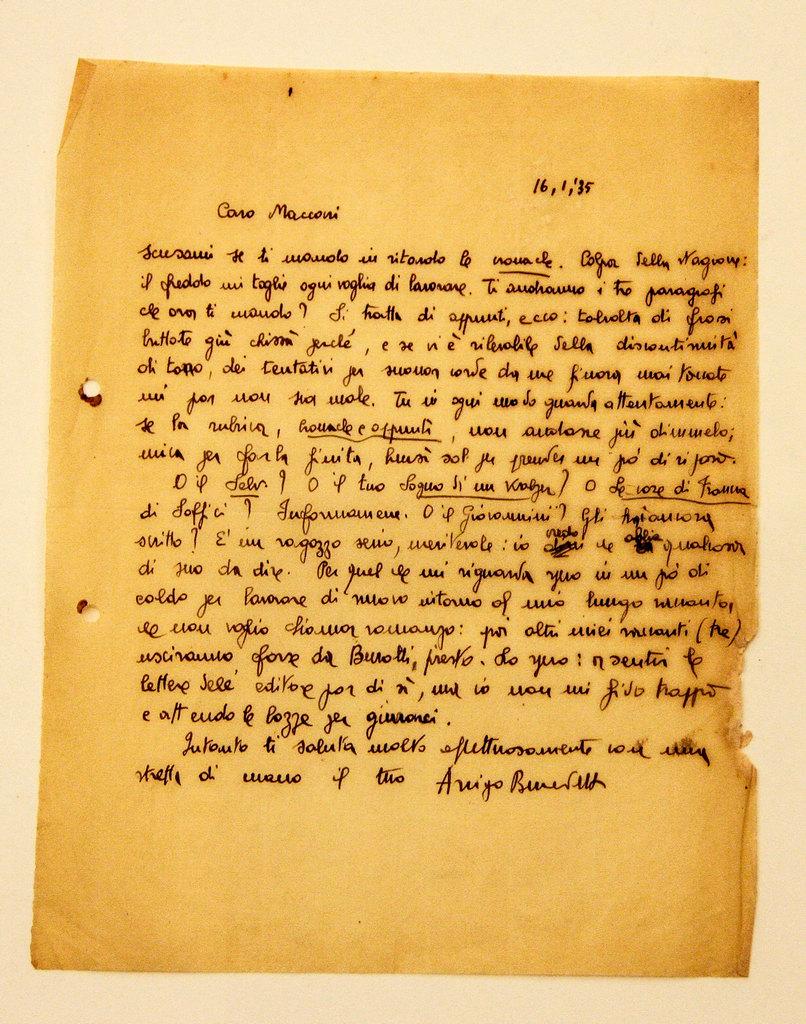 16, 1, '35
Caro Maccari
scusami se ti mando in ritardo le cronache. Colpa della stagione:
il freddo mi toglie ogni voglia di lavorare. Ti andranno i tre paragrafi
che ora ti mando? Si tratta di appunti, ecco: talvolta di frasi
buttate giù chissà perché, e se vi è rilevabile della discontinuità
di tono, dei tentativi per suonar corde da me finora mai toccate
mi par non sia male. Tu in ogni modo guarda attentamente:
se la rubrica, cronache e appunti, non andasse più dimmelo;
mica per farla finita, bensì sol per prender un pò di riposo.
O il Selv.? O il tuo Sogno di un Walzer? O Le cose di Francia
di Soffici? Informamene. O il Giovannini? Gli hai ancora
scritto? E' un ragazzo serio, meritevole: io credo che abbia qualcosa
di suo da dire. Per quel che mi riguarda spero in un pò di
caldo per lavorare di nuovo intorno al mio lungo racconto,
che non voglio chiamar romanzo: poi altri miei racconti (tre)
usciranno forse da Buratti, presto. Lo spero: a sentir le
lettere dell' editore par di sì, ma io non mi fido troppo
e attendo le bozze per giurarci.
Intanto ti saluta molto affettuosamente con una
stretta di mano il tuo Arrigo Benedetti